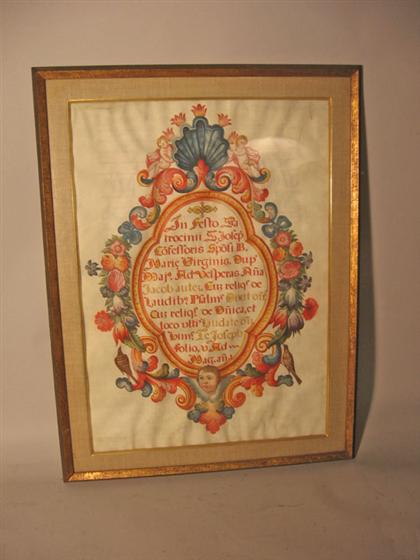 In Festo Pa
trocinii S. Josep
Cõfessoris Sposi B.
Marie Virginis. Dup
Maj. Ad Vesperas Aña
Jacob autẽ. Cũ reliqs de
laudibs Psalms
Cũ reliqs de Dñica, et
loco ulti Laudate
Hims Te Joseph
folio, v. Ad
Mag. aña